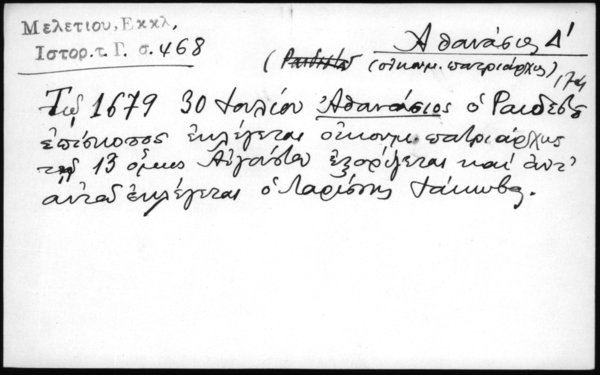 Μελετίου, Εκκλ,
Ιστορ. τ. Γ. σ. 468
Ἀθανάσιος Δ'
(οἰκουμ. πατριάρχης)
Τῷ 1679 30 Ἰουλίου Ἀθανάσιος ὁ Ραιδεστ
ἐπίσκοπος ἐκλέγεται οἰκουμ. πατριάρχης
τῇ 13 ὅμως Αὐγούστου ἐξορίζεται καί ἀντ'
αὐτοῦ ἐκλέγεται ὁ Λαρίσσης Ἰάκωβος.